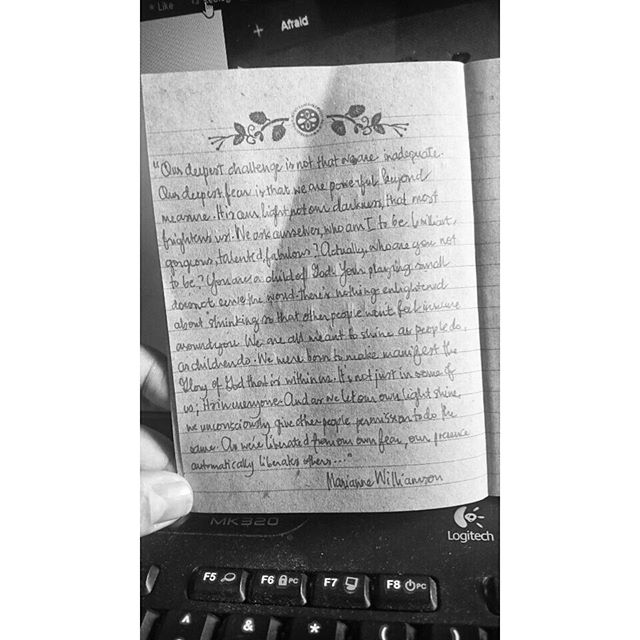 Like
+ Afraid
"Our deepest challenge is not that we are inadequate.
Our deepest fear is that we are powerful beyond
measure. It is our light, not our darkness, that most
frightens us. We ask ourselves, who am I to be brilliant,
gorgeous, talented, fabulous? Actually, who are you not
to be? You are a child of God. Your playing small
doesn't serve the world. There's nothing enlightened
about shrinking so that other people won't feel insecure
around you. We are all meant to shine as people do,
as children do. We were born to make manifest the
Glory of God that is within us. It's not just in some of
us; It is in everyone. And as we let our own light shine,
we unconsciously give other people permission to do the
same. As we're liberated from our own fear, our presence
automatically liberates others..."
Marianne Williamson
MK320
Logitech
F5 F6 PC F7 F8 PC
^ & * (